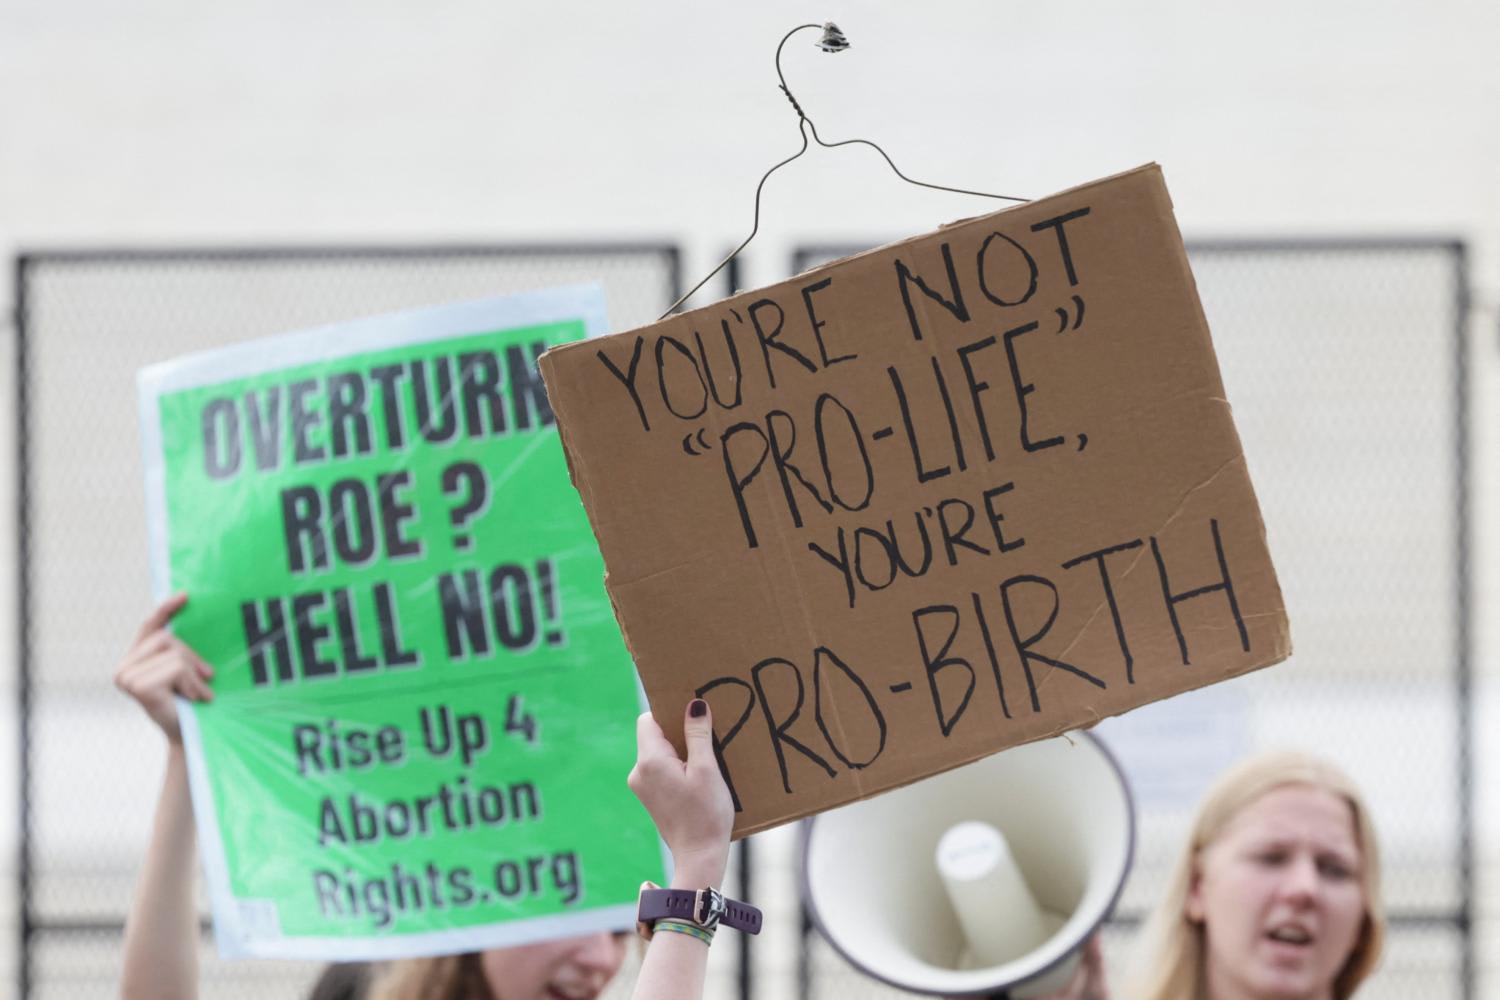 OVERTURN
ROE ?
HELL NO!
Rise Up 4
Abortion
Rights.org
YOU'RE NOT
“PRO-LIFE,”
YOU'RE
PRO-BIRTH